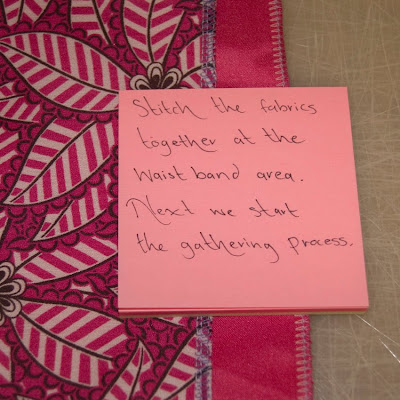 Stitch the fabrics
together at the
waist band area.
Next we start
the gathering process.